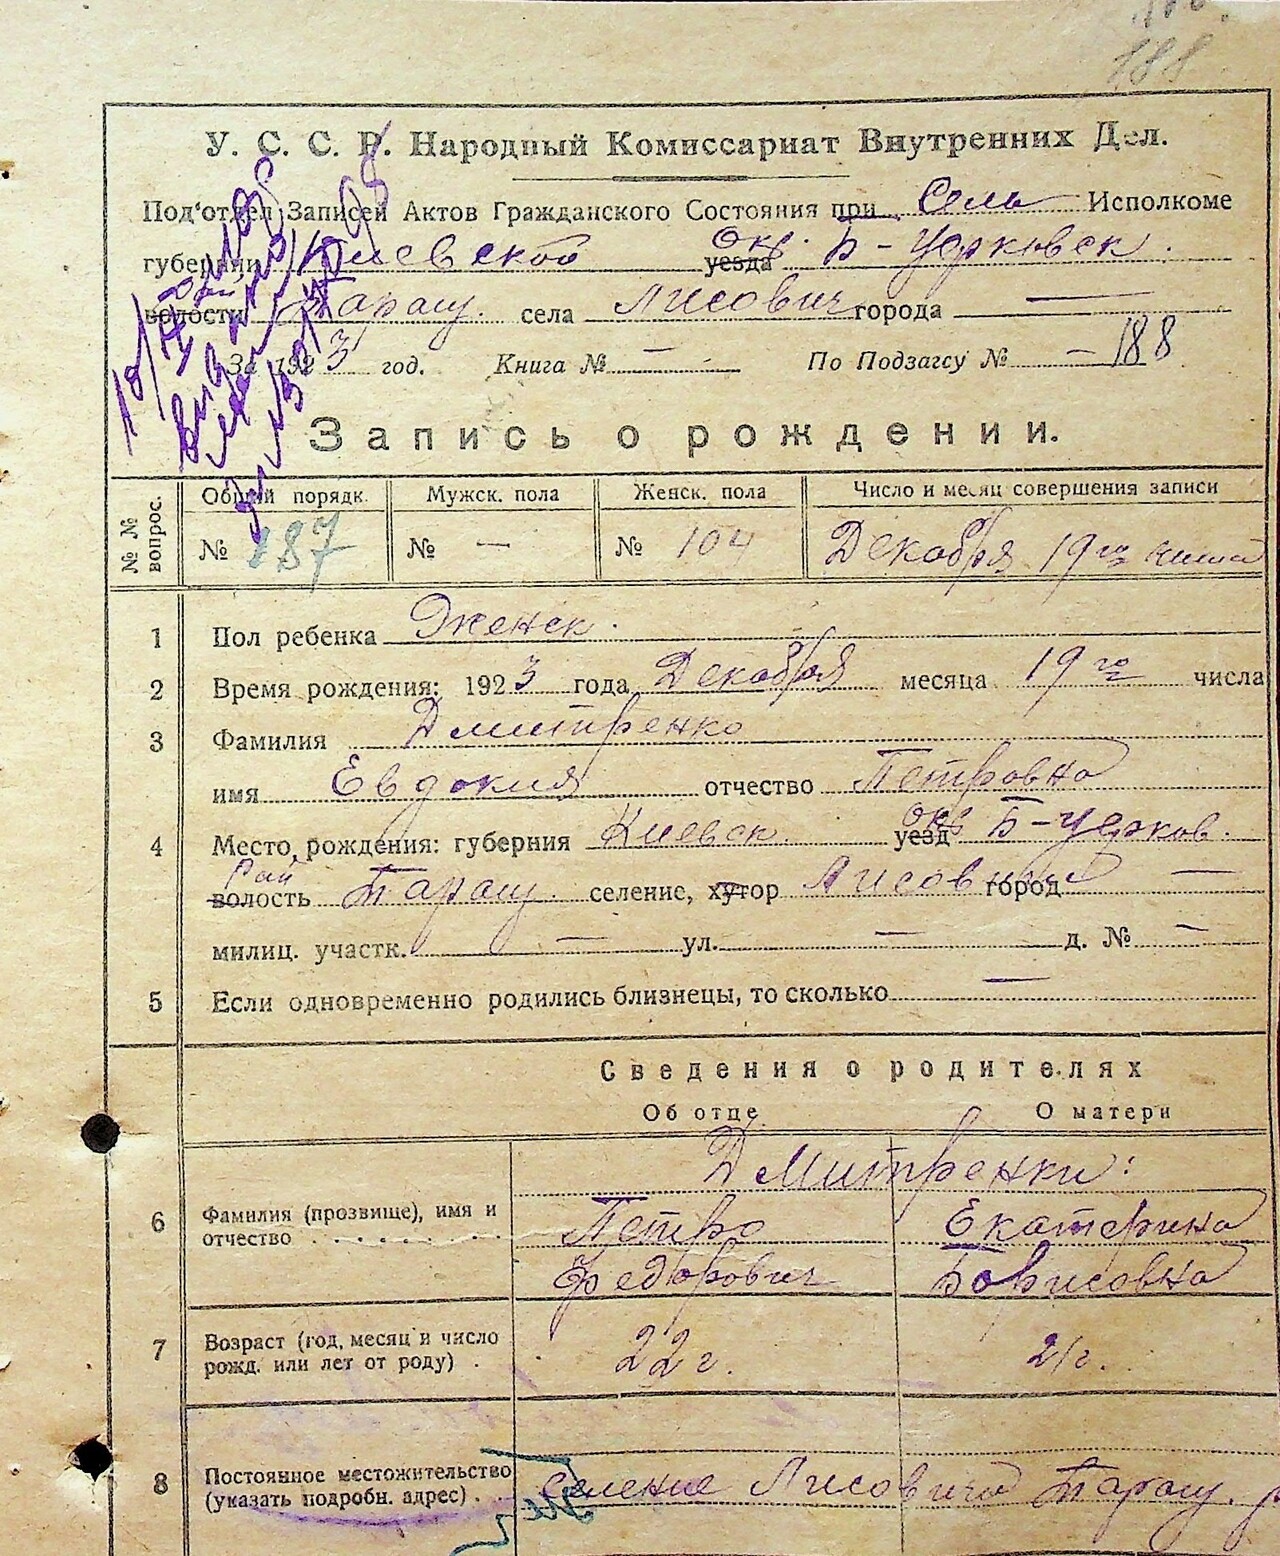 188
У. С. С. Р. Народный Комиссариат Внутренних Дел.
Под'отдел Записей Актов Гражданского Состояния при Сель Исполкоме
губернии Киевской уезда Окр. Б-Церковск.
волости Рай Таращ. села Лисович города —
За 1923 год. Книга № — По Подзагсу № — 188
Запись о рождении.
№ № вопрос. Общий порядк. Мужск. пола Женск. пола Число и месяц совершения записи
№ 187 № — № 104 Декабря 19го числа
1 Пол ребенка Женск.
2 Время рождения: 1923 года Декабря месяца 19го числа
3 Фамилия Дмитренко
имя Евдокия отчество Петровна
4 Место рождения: губерния Киевск. уезд Окр Б-Церков.
волость Рай Таращ. селение, хутор Лисовичи город —
милиц. участк. — ул. — д. № —
5 Если одновременно родились близнецы, то сколько —
Сведения о родителях
Об отце О матери
Дмитренки:
6 Фамилия (прозвище), имя и Петро Екатерина
отчество . . . . . . . . Федорович Борисовна
7 Возраст (год, месяц и число
рожд. или лет от роду) . 22 г. 21 г.
8 Постоянное местожительство селение Лисовичи Таращ. р
(указать подробн. адрес) .